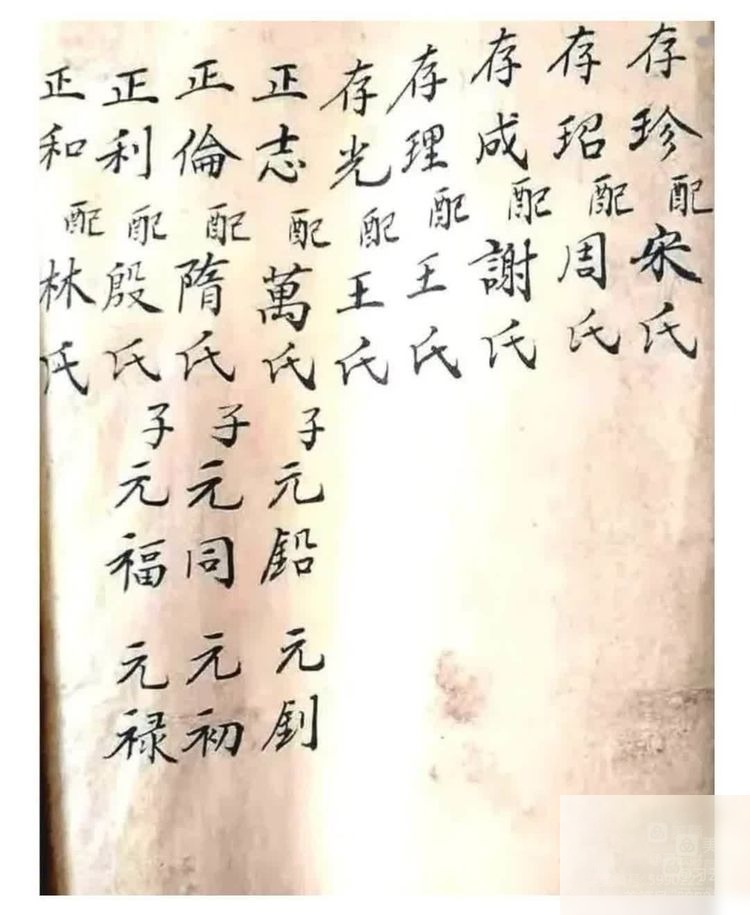 存珍配宋氏
存玿配周氏
存成配謝氏
存理配王氏
存光配王氏
正志配萬氏子元鉛元釗
正倫配隋氏子元同元初
正利配殷氏子元福元禄
正和配林氏